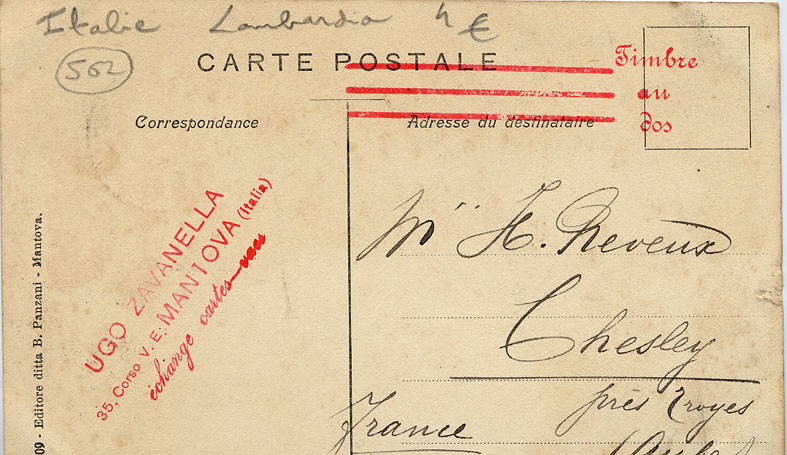 Italie Lombardia 4 €
502
CARTE POSTALE
Timbre
au
dos
Correspondance
Adresse du destinataire
UGO ZAVANELLA
35, Corso V. E. MANTOVA (Italia)
échange cartes-vues
Mr H. Reveux
Chesley
près Troyes
(Aube)
France
09 - Editore ditta B. Panzani - Mantova.